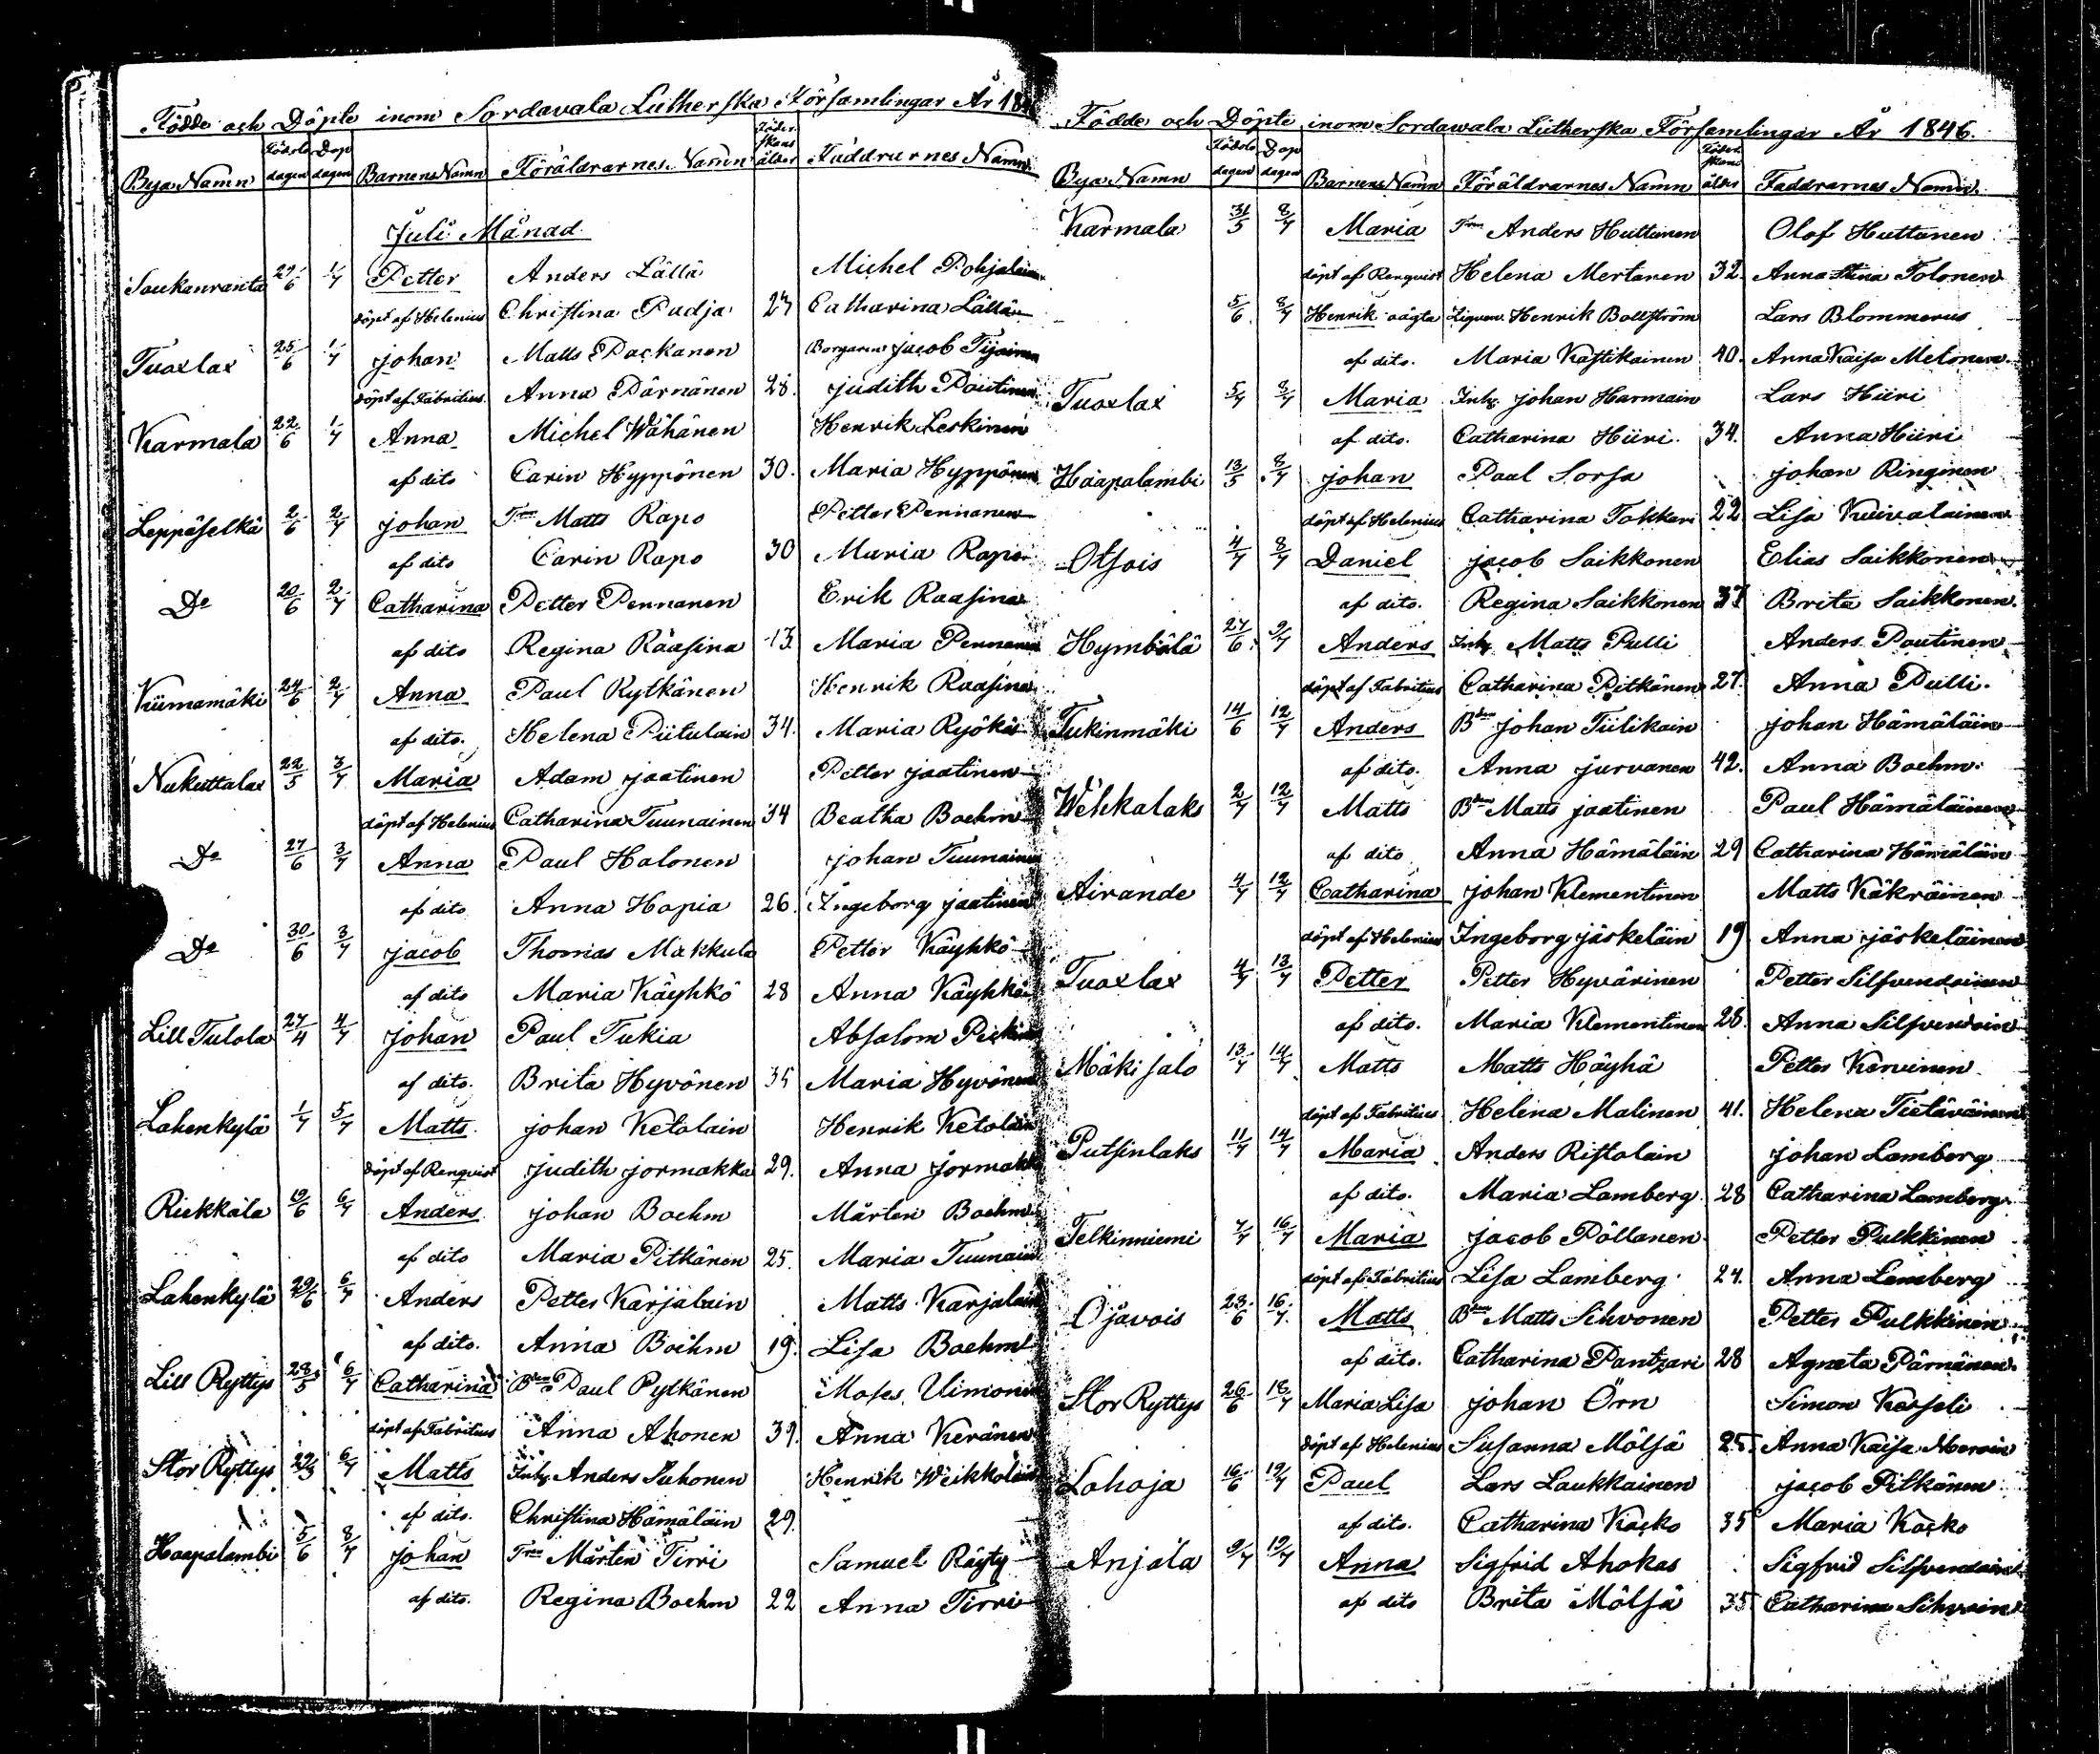 Födde och Döpte inom Sordavala Lutherska Församlingar År 184
Bya Namn Födelse dagen Dop dagen Barnens Namn Föräldrarnes Namn Föder skans ålder Faddrarnes Namn
Juli Månad
Soukanranta 29/6 1/7 Petter Anders Lällä Michel Pohjalain
döpt af Helenius Christina Padja 27 Catharina Lällä
Tuoxlax 25/6 1/7 Johan Matts Packanen Borgaren Jacob Tijainen
döpt af Fabritius Anna Pärnänen 28. Judith Poutinen
Karmala 22/6 1/7 Anna Michel Wähänen Henrik Leskinen
af dito Carin Hyppönen 30. Maria Hyppönen
Leppäselkä 2/6 2/7 Johan Matts Rapo Petter Pennanen
af dito Carin Rapo 30 Maria Rapo
Do 20/6 2/7 Catharina Petter Pennanen Erik Raasina
af dito Regina Raasina 13. Maria Pennanen
Kiimamäki 24/6 2/7 Anna Paul Rytkänen Henrik Raasina
af dito. Helena Piitulain 34. Maria Ryökäs
Nukuttalax 22/5 3/7 Maria Adam Jaatinen Petter Jaatinen
döpt af Helenius Catharina Tuunainen 34 Beatha Boehm
Do 27/6 3/7 Anna Paul Halonen Johan Tuunainen
af dito Anna Hapia 26. Ingeborg Jaatinen
Do 30/6 3/7 Jacob Thomas Makkula Petter Käyhkö
af dito Maria Käyhkö 28 Anna Käyhkö
Lill Tulola 27/4 4/7 Johan Paul Tukia Absalom
af dito. Brita Hyvönen 35 Maria Hyvönen
Lahenkylä 1/7 5/7 Matts Johan Ketolain Henrik Ketolain
döpt af Renqvist Judith Jormakka 29. Anna Jormakk
Riekkala 19/6 6/7 Anders Johan Boehm Mårten Boehm
af dito Maria Pitkänen 25. Maria Tuunain
Lahenkylä 29/6 6/7 Anders Petter Karjalain Matts Karjalain
af dito. Anna Boehm 19. Lisa Boehm
Lill Ryttys 28/5 6/7 Catharina Paul Pytkänen Moses Uimonen
döpt af Fabritius Anna Ahonen 39. Anna Keränen
Stor Ryttys 6/7 Matts Inhy. Anders Suhonen Henrik Weikkolain
af dito. Christina Hämäläin 29.
Haapalambi 5/6 8/7 Johan Mårten Tirri Samuel Räyty
af dito. Regina Boehm 22 Anna Tirri
Födde och Döpte inom Sordawala Lutherska Församlingar År 1846.
Bya Namn Födelse dagen Dop dagen Barnens Namn Föräldrarnes Namn Föder skans ålder Faddrarnes Namn.
Karmala 31/5 8/7 Maria Anders Huttunen Olof Huttunen
döpt af Renqvist Helena Mertanen 32. Anna Stina Tolonen
5/6 8/7 Henrik oägta Henrik Bollström Lars Blommerus
af dito. Maria Kastikainen 40. Anna Kaisa Melonen
Tuoxlax 5/7 8/7 Maria Inhy. Johan Harmain Lars Hiiri
af dito. Catharina Hiiri. 34. Anna Hiiri
Haapalambi 13/5 8/7 Johan Paul Sorsa Johan Ringinen
döpt af Helenius Catharina Tokkari 22 Lisa Kuivalainen
Otsois 4/7 8/7 Daniel Jacob Saikkonen Elias Saikkonen
af dito. Regina Saikkonen 37 Brita Saikkonen.
Hymbölä 27/6 9/7 Anders Inhy. Matts Pulli Anders Poutinen
döpt af Fabritius Catharina Pitkänen 27. Anna Pulli.
Tukinmäki 14/6 12/7 Anders Johan Tiilikain Johan Hämäläin
af dito. Anna Jurvanen 42. Anna Boehm.
Wehkalaks 2/7 12/7 Matts Matts Jaatinen Paul Hämäläinen
af dito Anna Hämäläin 29 Catharina Hämäläin
Airande 4/7 12/7 Catharina Johan Klementinen Matts Käkräinen
döpt af Helenius Ingeborg Jäskeläin 19 Anna Jäskeläinen
Tuoxlax 4/7 13/7 Petter Petter Hyvärinen Petter Silfvendoinen
af dito. Maria Klementinen 26. Anna Silfvendoin
Mäkisalo 13/7 14/7 Matts Matts Häyhä Petter Kervinen
döpt af Fabritius Helena Malinen 41. Helena Tietäväinen
Putsinlaks 11/7 14/7 Maria Anders Ristolain Johan Lamberg
af dito. Maria Lamberg. 28 Catharina Lamberg.
Telkinniemi 7/7 16/7 Maria Jacob Pöllänen Petter Pulkkinen
döpt af Fabritius Lisa Lamberg 24. Anna Lamberg
Ojavois 23/6 16/7 Matts Matts Sihvonen Petter Pulkkinen
af dito. Catharina Pantzari 28 Agneta Pärnänen.
Stor Ryttys 26/6 18/7 Maria Lisa Johan Örn Simon Kesseli
döpt af Helenius Susanna Mölsä 25. Anna Kaisa
Lohoja 16/6 19/7 Paul Lars Laukkainen Jacob Pitkänen
af dito. Catharina Kocko 35 Maria Kocko
Anjala 9/7 19/7 Anna Sigfrid Ahokas Sigfrid Silfvendoin
af dito Brita Mölsä 35 Catharina Sihvoin